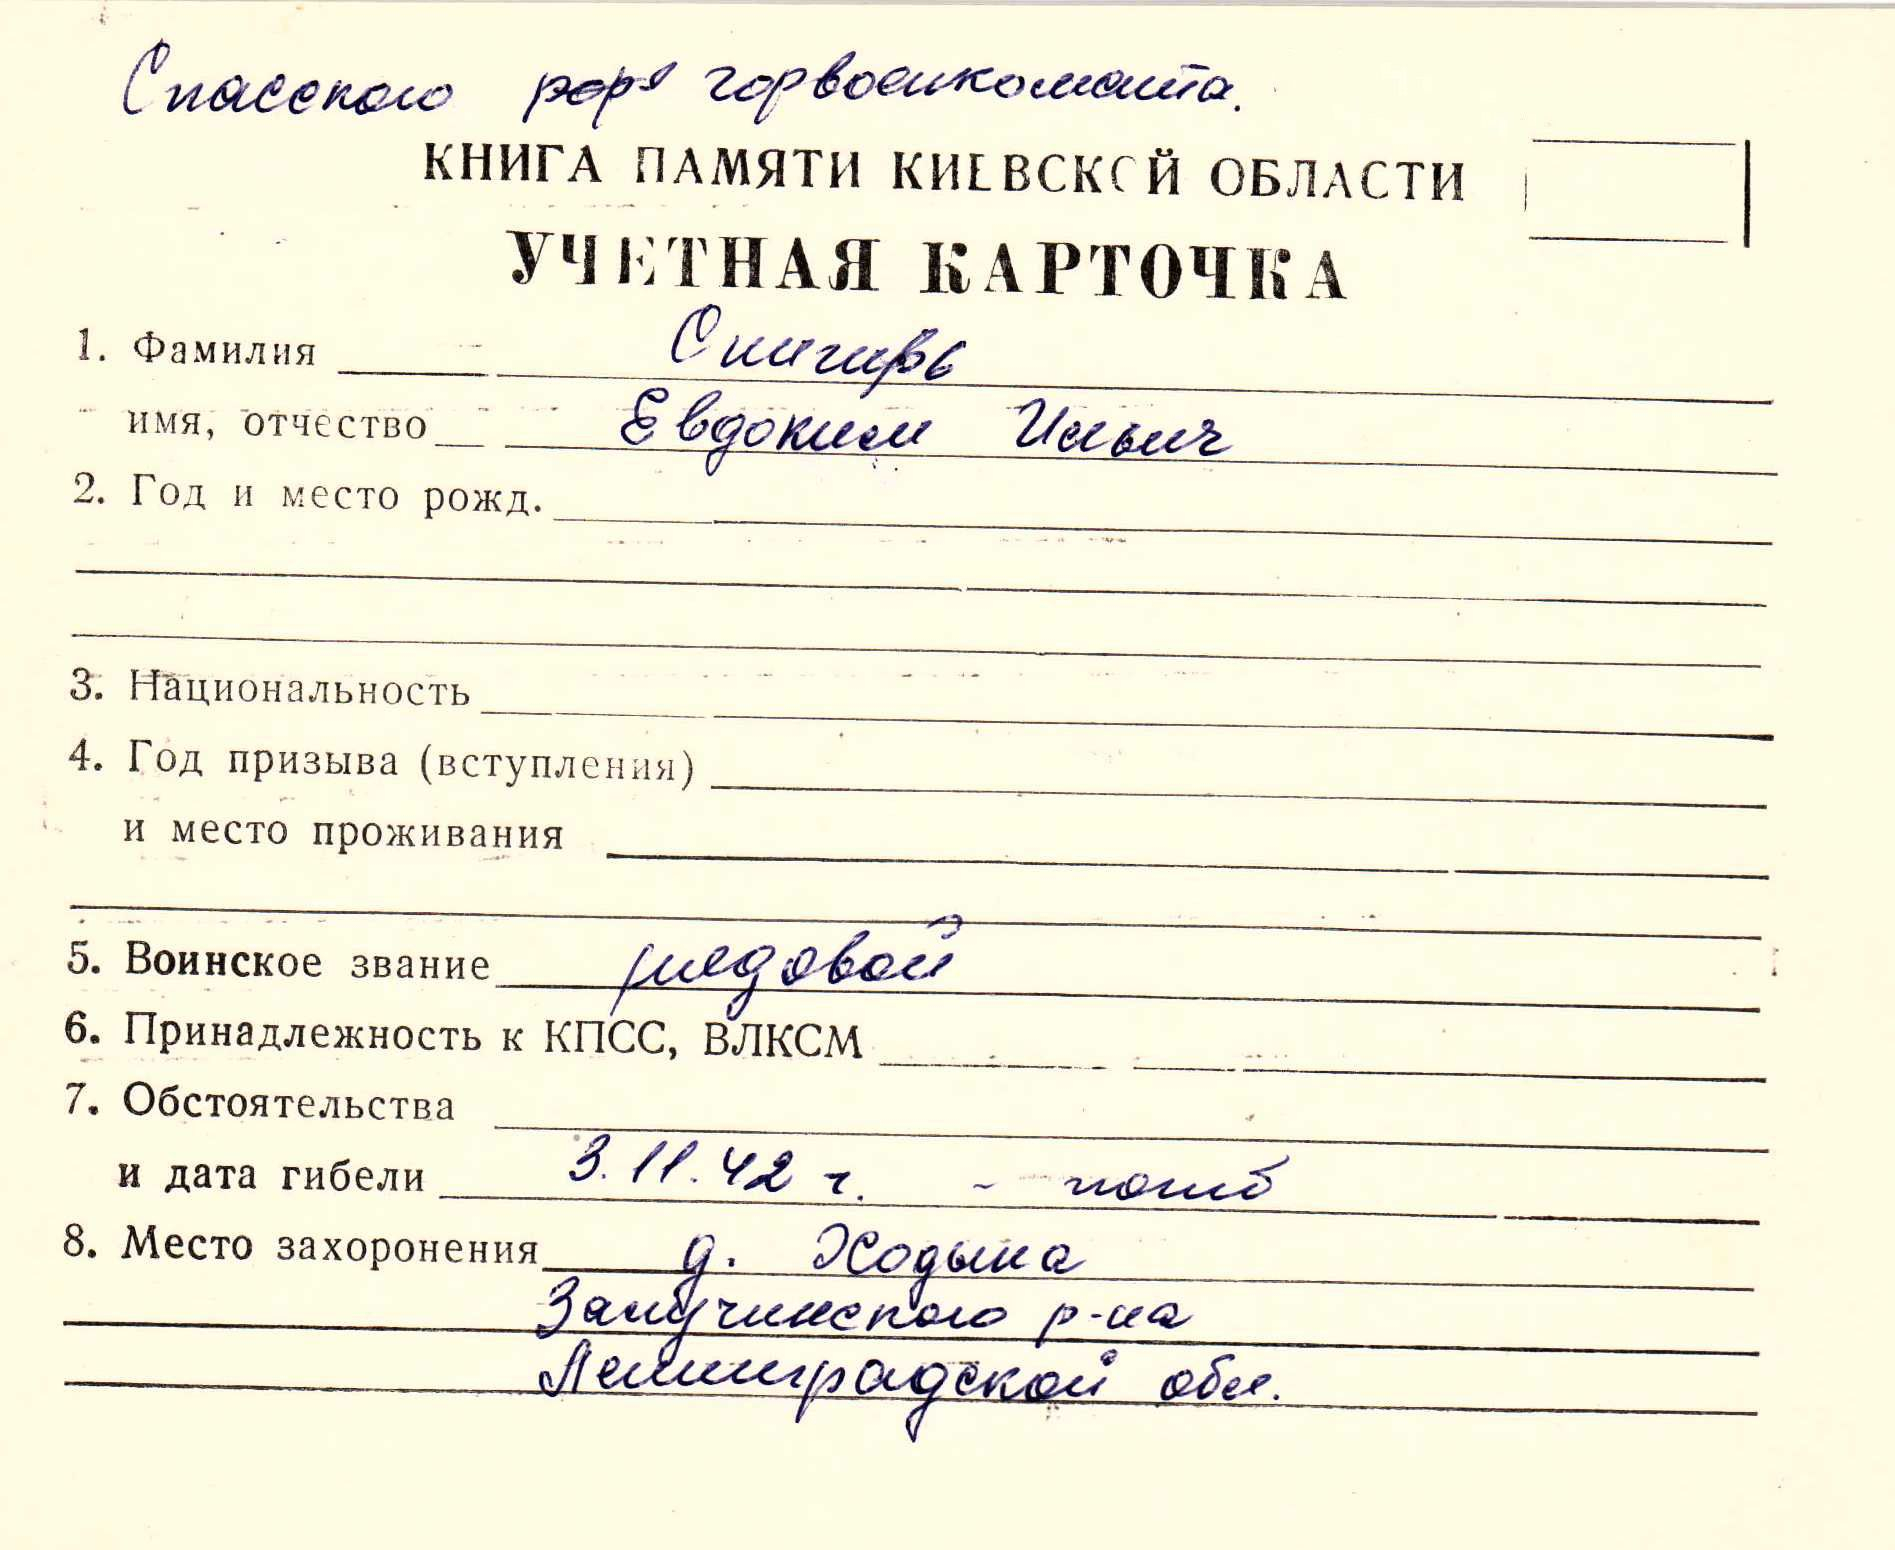 Спасского горвоенкомата.
КНИГА ПАМЯТИ КИЕВСКОЙ ОБЛАСТИ
УЧЕТНАЯ КАРТОЧКА
1. Фамилия Снигирь
имя, отчество Евдоким Ильич
2. Год и место рожд.
3. Национальность
4. Год призыва (вступления)
и место проживания
5. Воинское звание рядовой
6. Принадлежность к КПСС, ВЛКСМ
7. Обстоятельства
и дата гибели 3.11.42 г. - погиб
8. Место захоронения д. Ходына
Залучинского р-на
Ленинградской обл.